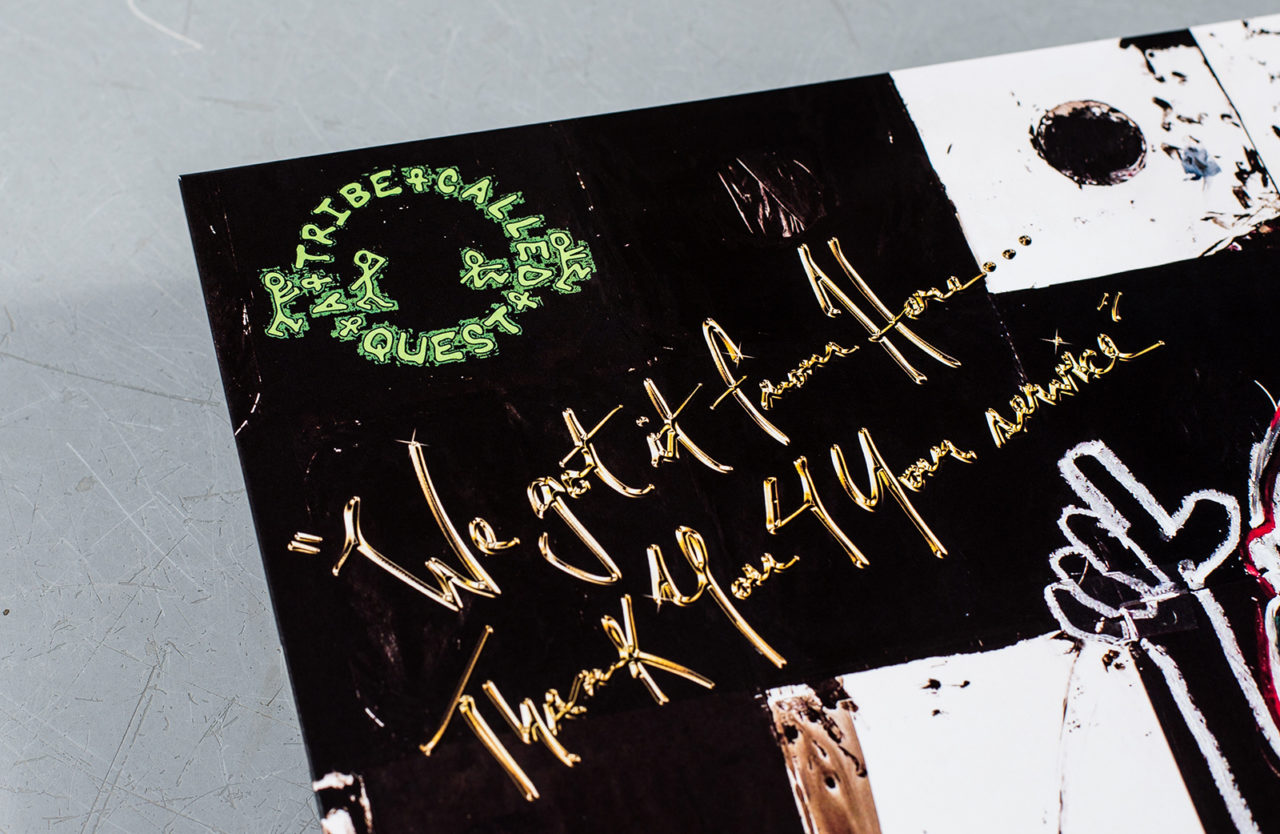 A TRIBE CALLED QUEST
"We got it from Here....
Thank You 4 Your service"